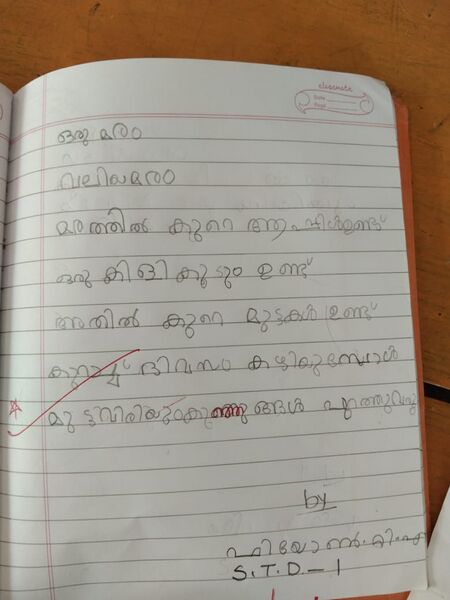 classmate
Date
Page
ഒരു മരം
വലിയമരം
മരത്തിൽ കുറെ ആപ്പിൾഉണ്ട്
ഒരു കിളി കൂടും ഉണ്ട്
അതിൽ കുറെ മുട്ടകൾ ഉണ്ട്
കുറച്ച് ദിവസം കഴിയുമ്പോൾ
മുട്ടവിരിയുംകുഞ്ഞുങ്ങൾ പുറത്തുവരും
by
S.T.D-1